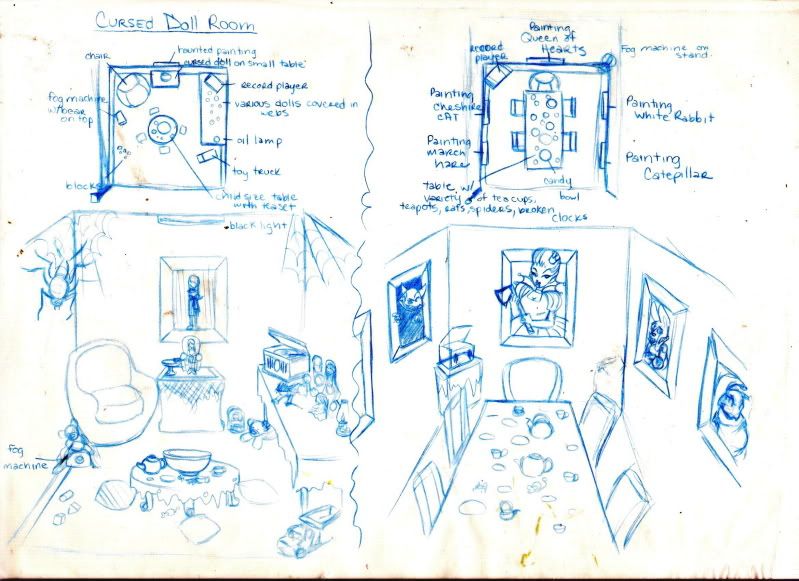 CURSED DOLL ROOM
chair
haunted painting
cursed doll on small table
record player
various dolls covered in
webs
fog machine
w/bear
on top
oil lamp
toy truck
blocks
child size table
with teaset
black light
Fog
machine
Painting
Queen of
Hearts
record
player
Fog machine on
stand.
Painting
cheshire
CAT
Painting
White Rabbit
Painting
march
hare
Painting
Catepillar
candy
bowl
table w/
variety of teacups,
teapots, rats, spiders, broken
clocks